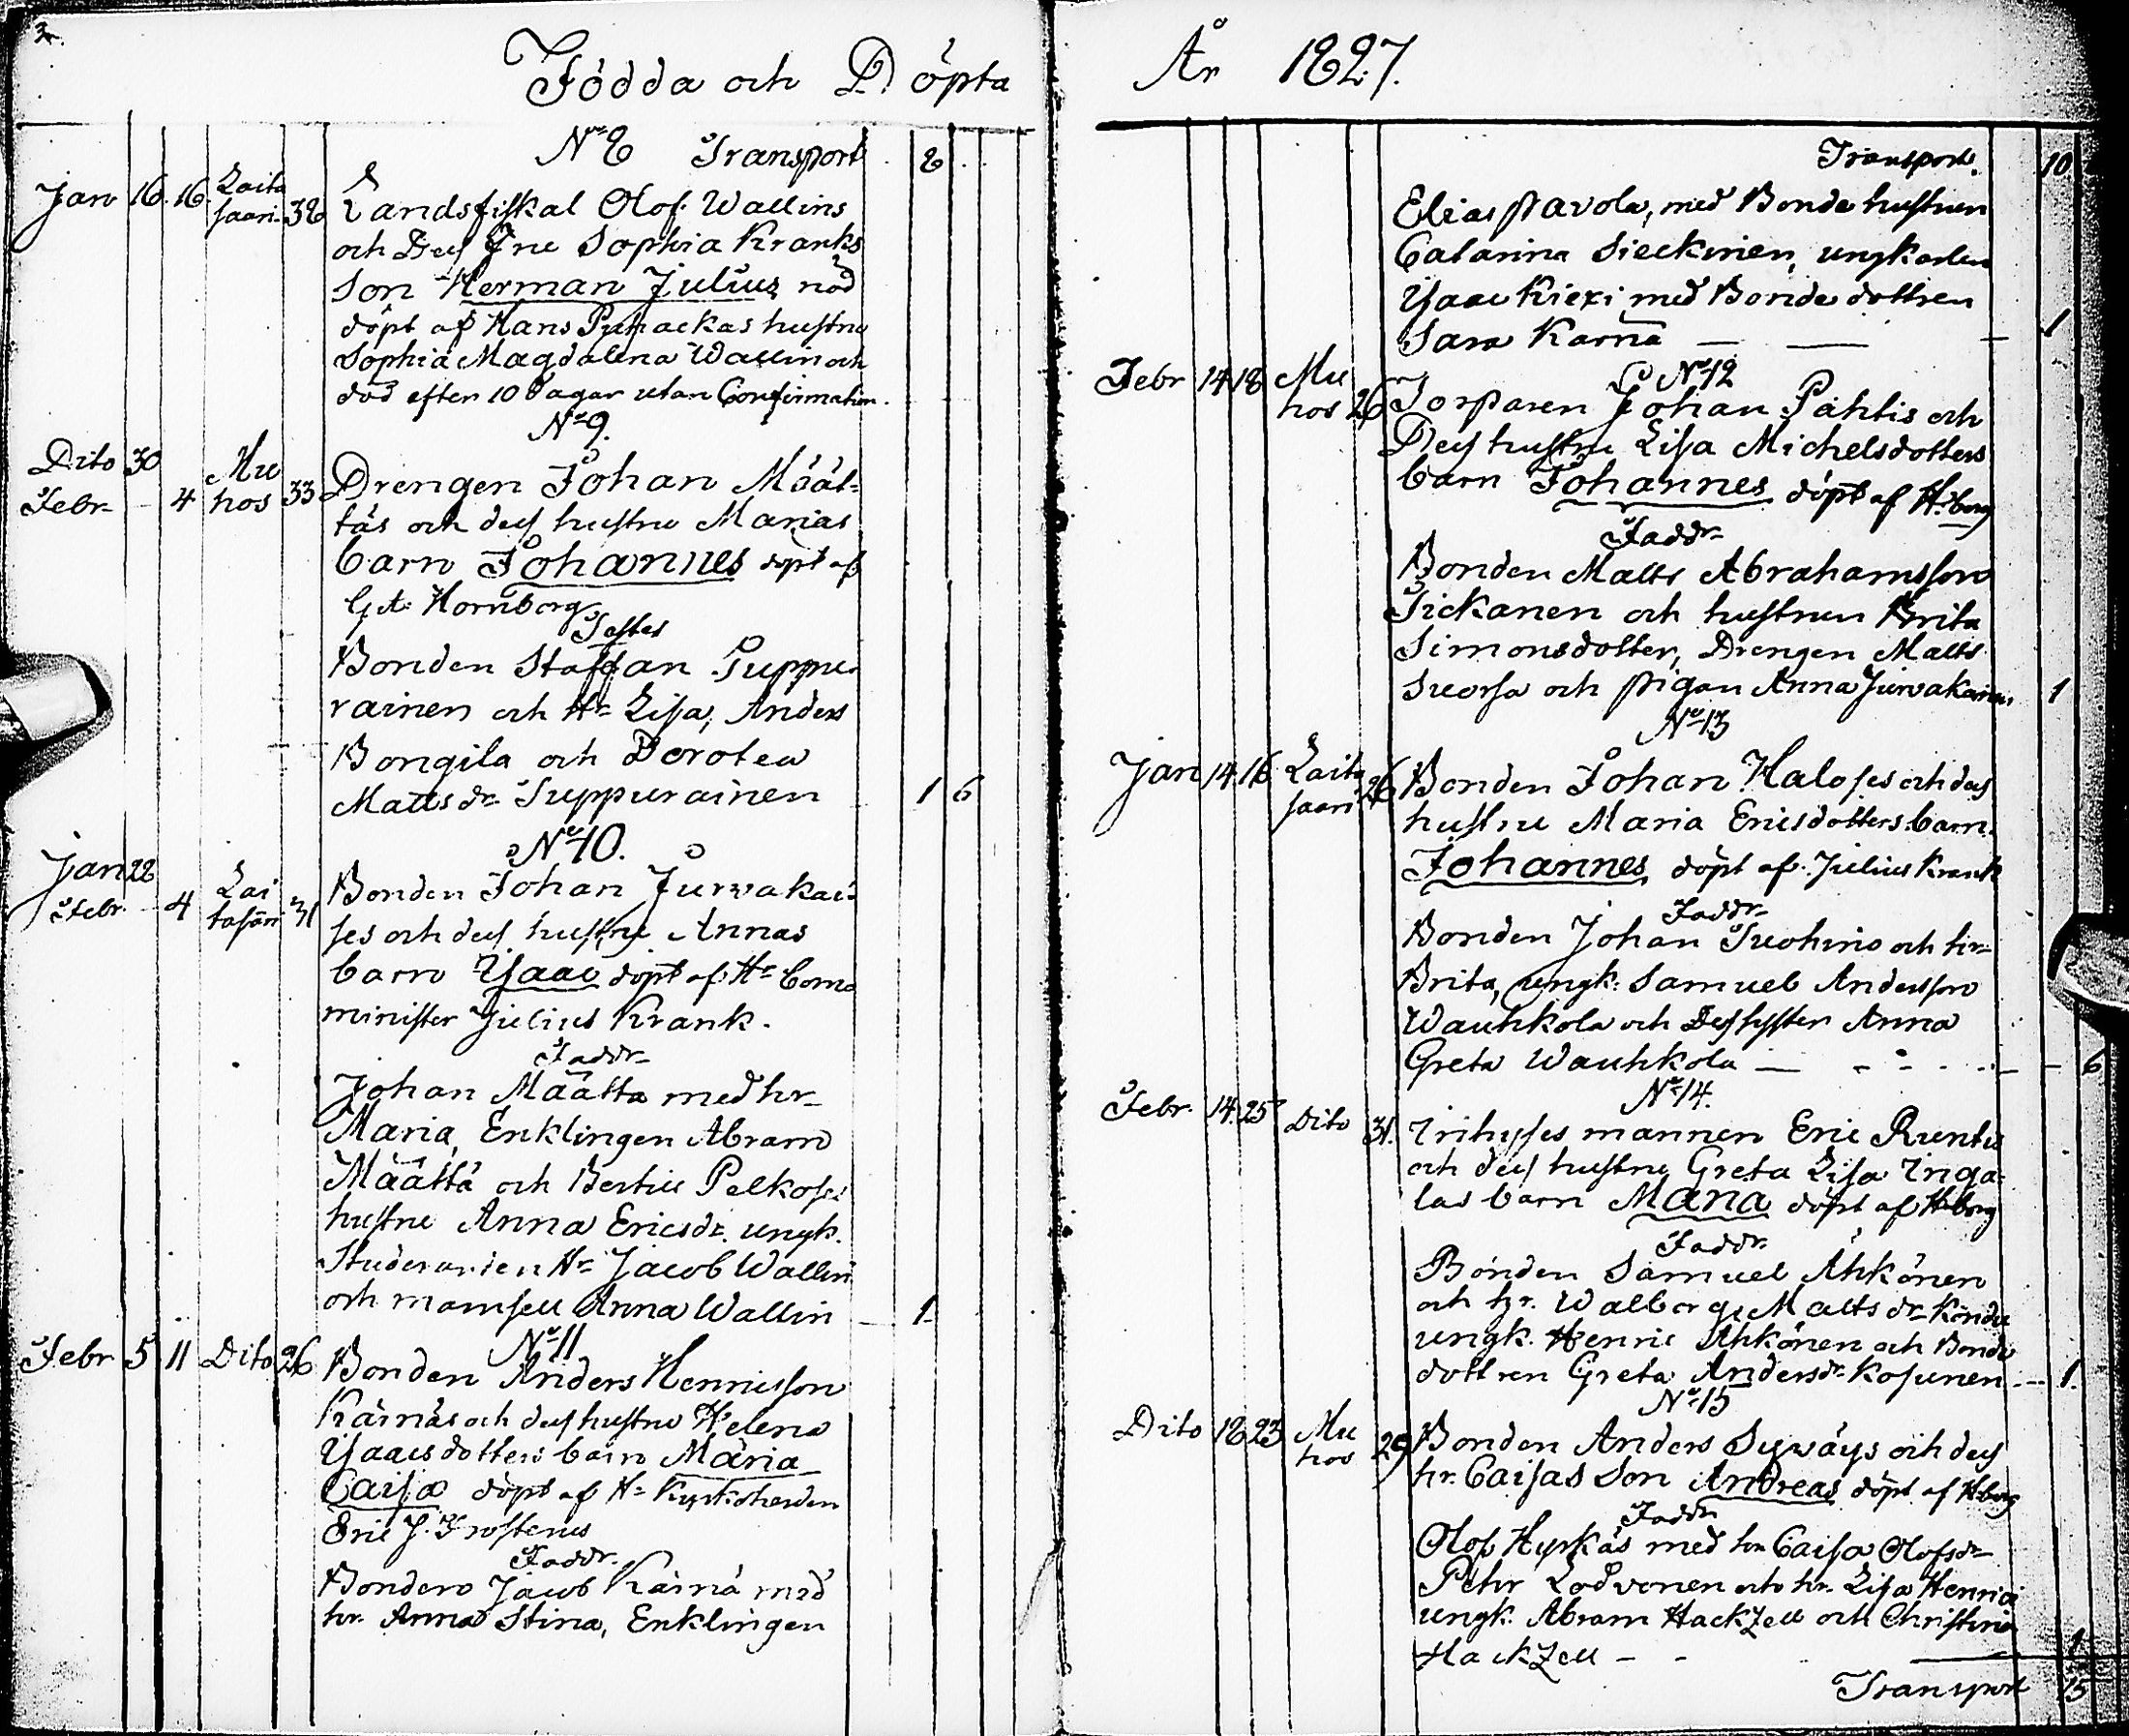 2.
Födda och Döpta
No 8 Transport 8
Jan 16. 16. Laita
saari. 38 Landsfiskal Olof Wallins
och Dess Fru Sophia Kranks
Son Herman Julius, nöd
döpt af Hans Pyhackas hustru
Sophia Magdalena Wallin och
död efter 10 Dagar utan Confirmation.
No 9.
Dito 30
Febr - 4 Mu
hos 33 Drengen Johan Määt-
täs och dess hustru Marias
barn Johannes döpt af
G. A. Hornborg
Testes
Bonden Staffan Suppu-
rainen och Hr Lisa, Anders
Bongila och Dorotea
Matts dr Suppurainen 1 6
No 10.
Jan 28
Febr. - 4 Lai
tasari 31 Bonden Johan Jurwakai-
ses och dess hustru Annas
barn Isaac döpt af Hr Com-
minister Julius Krank.
Faddr
Johan Määttä med hr
Maria, Enklingen Abram
Määttä och Bertill Pelkoses
hustru Anna Ericsdr. ungk.
Studeranden Hr Jacob Wallin
och mamsell Anna Wallin 1
No 11
Febr 5 11 Dito 26 Bonden Anders Henricsson
Kärnäs och dess hustru Helena
Isaacsdotters barn Maria
Caisa döpt af Hr Kyrkoherden
Eric J. Frosterus
Faddr.
Bonden Jacob Kärnä med
hr. Anna Stina, Enklingen
År 1827.
Transport. 10
Elias Pavola, med Bonde hustrun
Catarina Sieckinen, ungkarlen
Isaac Kiexi med Bonde dottren
Sara Karna — — 1
No 12
Febr 14 18 Mu
hos 26 Torparen Johan Pahtis och
Dess hustru Lisa Michelsdotters
barn Johannes döpt af H:berg
Faddr
Bonden Matts Abrahamsson
Tickanen och hustrun Brita
Simonsdotter, Drengen Matts
Suorsa och pigan Anna Jurwakainen 1
No 13
Jan 14. 16 Laita
saari 26 Bonden Johan Haloses och dess
hustru Maria Ericsdotters barn
Johannes döpt af Julius Krank
Faddr
Bonden Johan Tuohino och hr
Brita, ungk: Samuel Andersson
Wauhkola och Dess syster Anna
Greta Wauhkola — - - 6
No 14.
Febr. 14. 25 Dito 31. Inhyses mannen Eric Runtus
och dess hustru Greta Lisa Inga-
las barn Maria döpt af H:borg
Faddr
Bonden Samuel Ähkönen
och hr. Walborg Matts dr
ungk. Henric Ähkönen och Bonde
dottren Greta Andersdr Kosunen - - 1.
No 15
Dito 18 23 Mu
hos 29 Bonden Anders Sywäys och dess
hr. Caisas Son Andreas döpt af H:borg
Faddr
Olof Hyrkäs med hr Caisa Olofsdr
Petr Lodvonen och hr. Lisa Henrici
ungk. Abram Hackzell och Christina
Hackzell - - 1
Transport 15